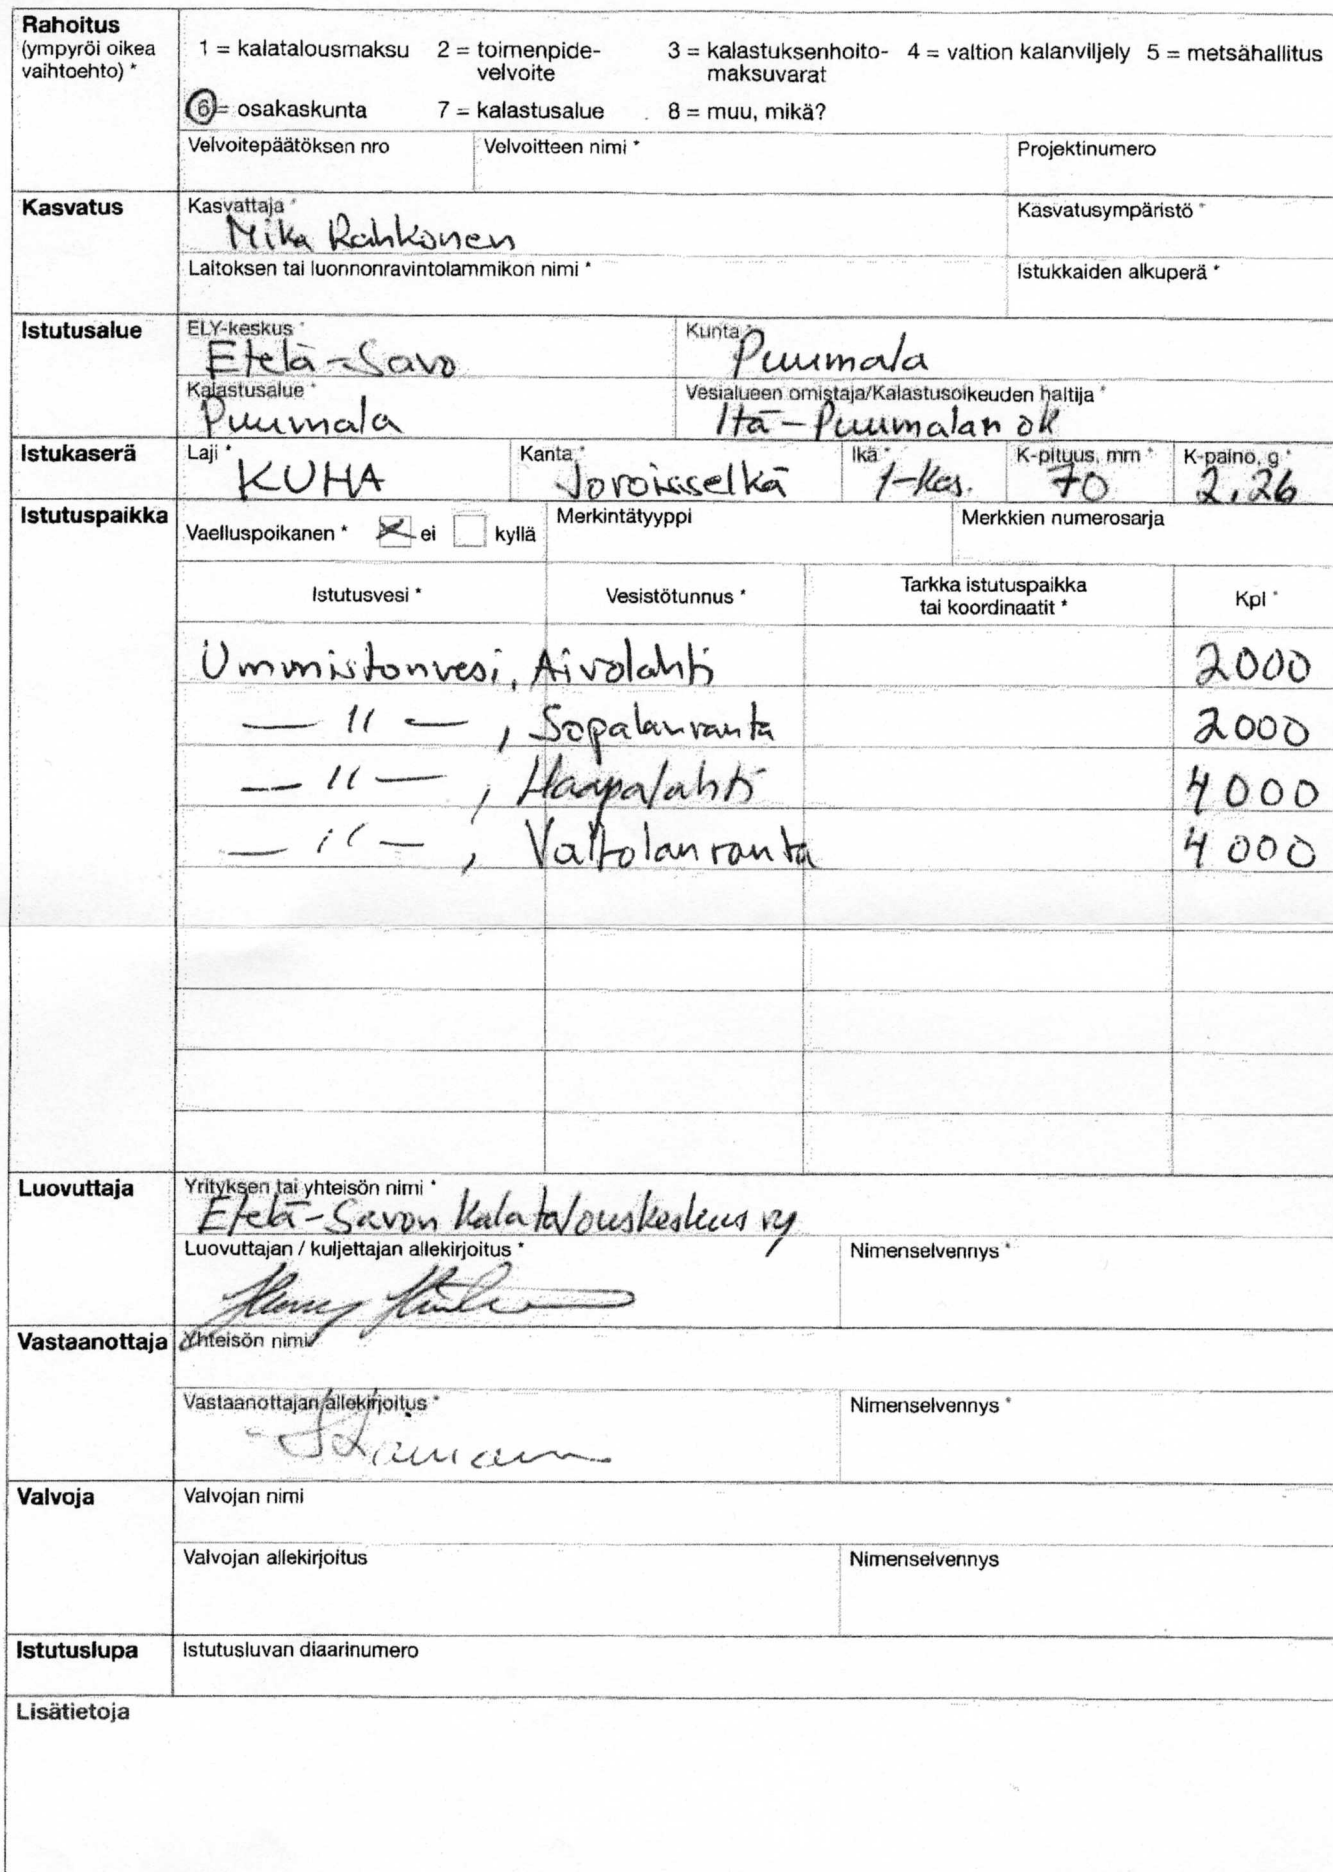 Rahoitus
(ympyröi oikea
vaihtoehto) *
1 = kalatalousmaksu 2 = toimenpide- 3 = kalastuksenhoito- 4 = valtion kalanviljely 5 = metsähallitus
velvoite maksuvarat
6 = osakaskunta 7 = kalastusalue 8 = muu, mikä?
Velvoitepäätöksen nro Velvoitteen nimi * Projektinumero
Kasvatus Kasvattaja * Kasvatusympäristö *
Mika Rahkonen
Laitoksen tai luonnonravintolammikon nimi * Istukkaiden alkuperä *
Istutusalue ELY-keskus * Kunta *
Etelä-Savo Puumala
Kalastusalue * Vesialueen omistaja/Kalastusoikeuden haltija *
Puumala Itä-Puumalan ok
Istukaserä Laji * Kanta * Ikä * K-pituus, mm * K-paino, g *
KUHA Joroisselkä 1-kes. 70 2,26
Istutuspaikka Vaelluspoikanen * ei kyllä Merkintätyyppi Merkkien numerosarja
Istutusvesi * Vesistötunnus * Tarkka istutuspaikka Kpl *
tai koordinaatit *
Ummistonvesi, Aivolahti 2000
— 11 — , Sopalanranta 2000
— 11 — , Haapalahti 4000
— 11 — , Valtolanranta 4000
Luovuttaja Yrityksen tai yhteisön nimi *
Etelä-Savon Kalatalouskeskus ry
Luovuttajan / kuljettajan allekirjoitus * Nimenselvennys *
Vastaanottaja Yhteisön nimi *
Vastaanottajan allekirjoitus * Nimenselvennys *
Valvoja Valvojan nimi
Valvojan allekirjoitus Nimenselvennys
Istutuslupa Istutusluvan diaarinumero
Lisätietoja